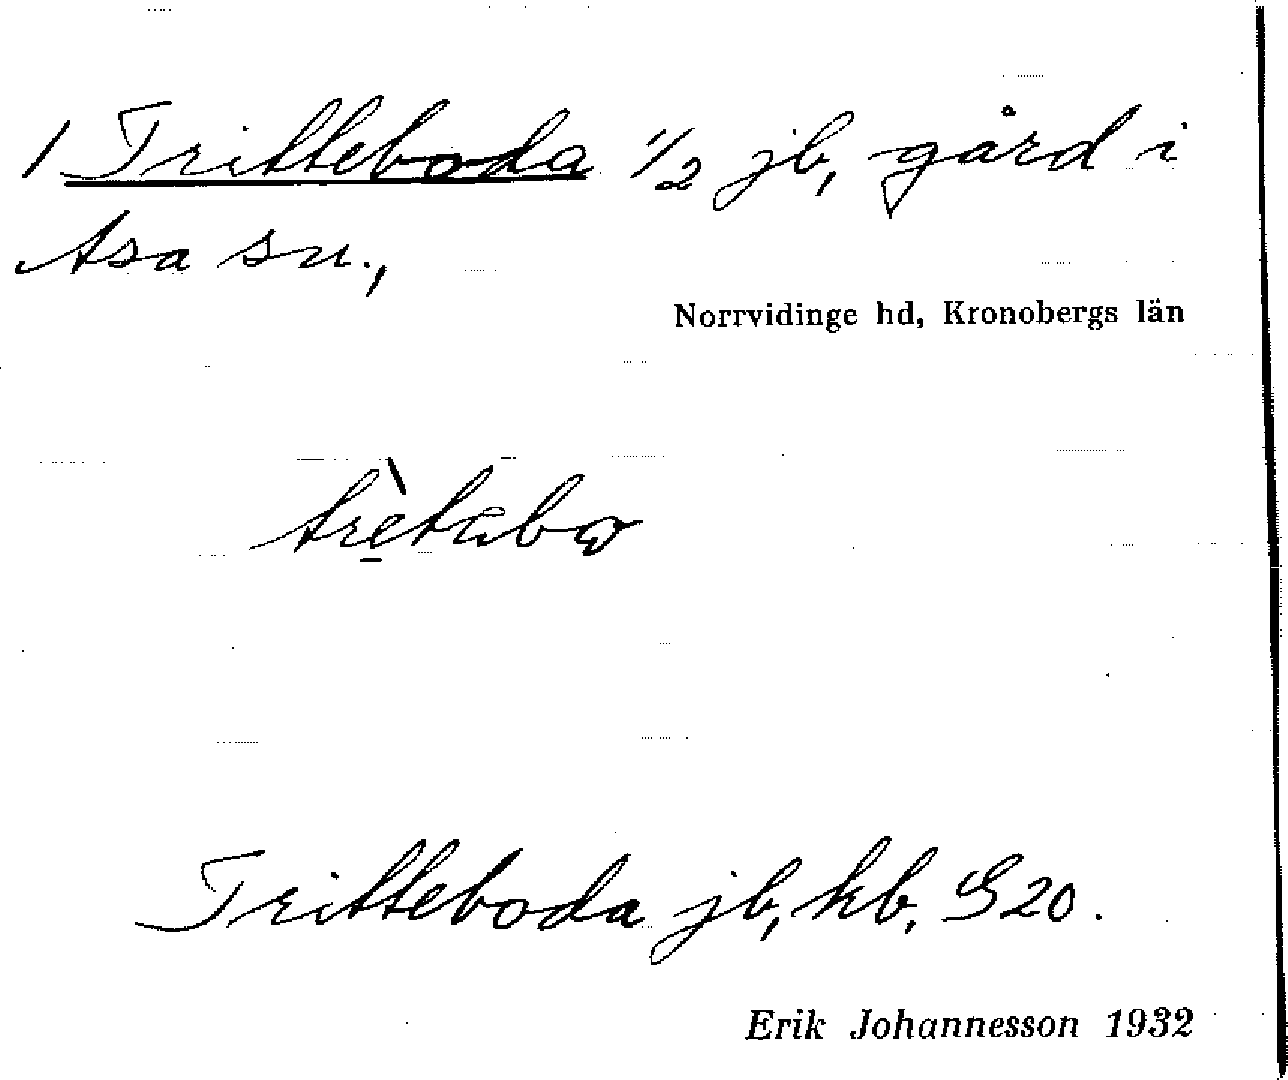 1 Tritteboda 1/2 jb, gård i
Asa sn.,
Norrvidinge hd, Kronobergs län
trè̠tabo
Tritteboda jb, kb, G20.
Erik Johannesson 1932